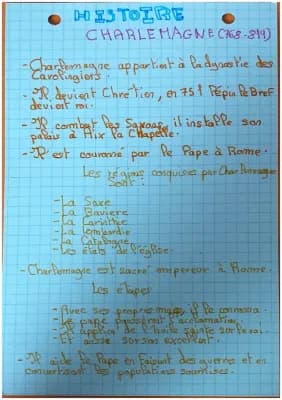 HISTOIRE
CHARLEMAGNE (768-814)
- Charlemagne appartient à la dynastie des
Carolingiens.
- Il devient Chrétien, en 751 Pépin le Bref
devient roi.
- Il combat les Saxons, il installe son
palais à Aix la Chapelle.
- Il est couronné par le Pape à Rome.
Les régions conquises par Charlemagne
sont :
- La Saxe
- La Bavière
- La Carinthie
- La Lombardie
- La Catalogne
- Les états de l'église.
- Charlemagne est sacré empereur à Rome.
Les étapes
- Avec ses propres mains, il le couronna.
- Le pape l'acclamation,
- Il applica de l'huile sainte sur le roi.
- Et assise sur son
- Il aide le Pape en faisant des guerres et en
convertissant les populations soumises.